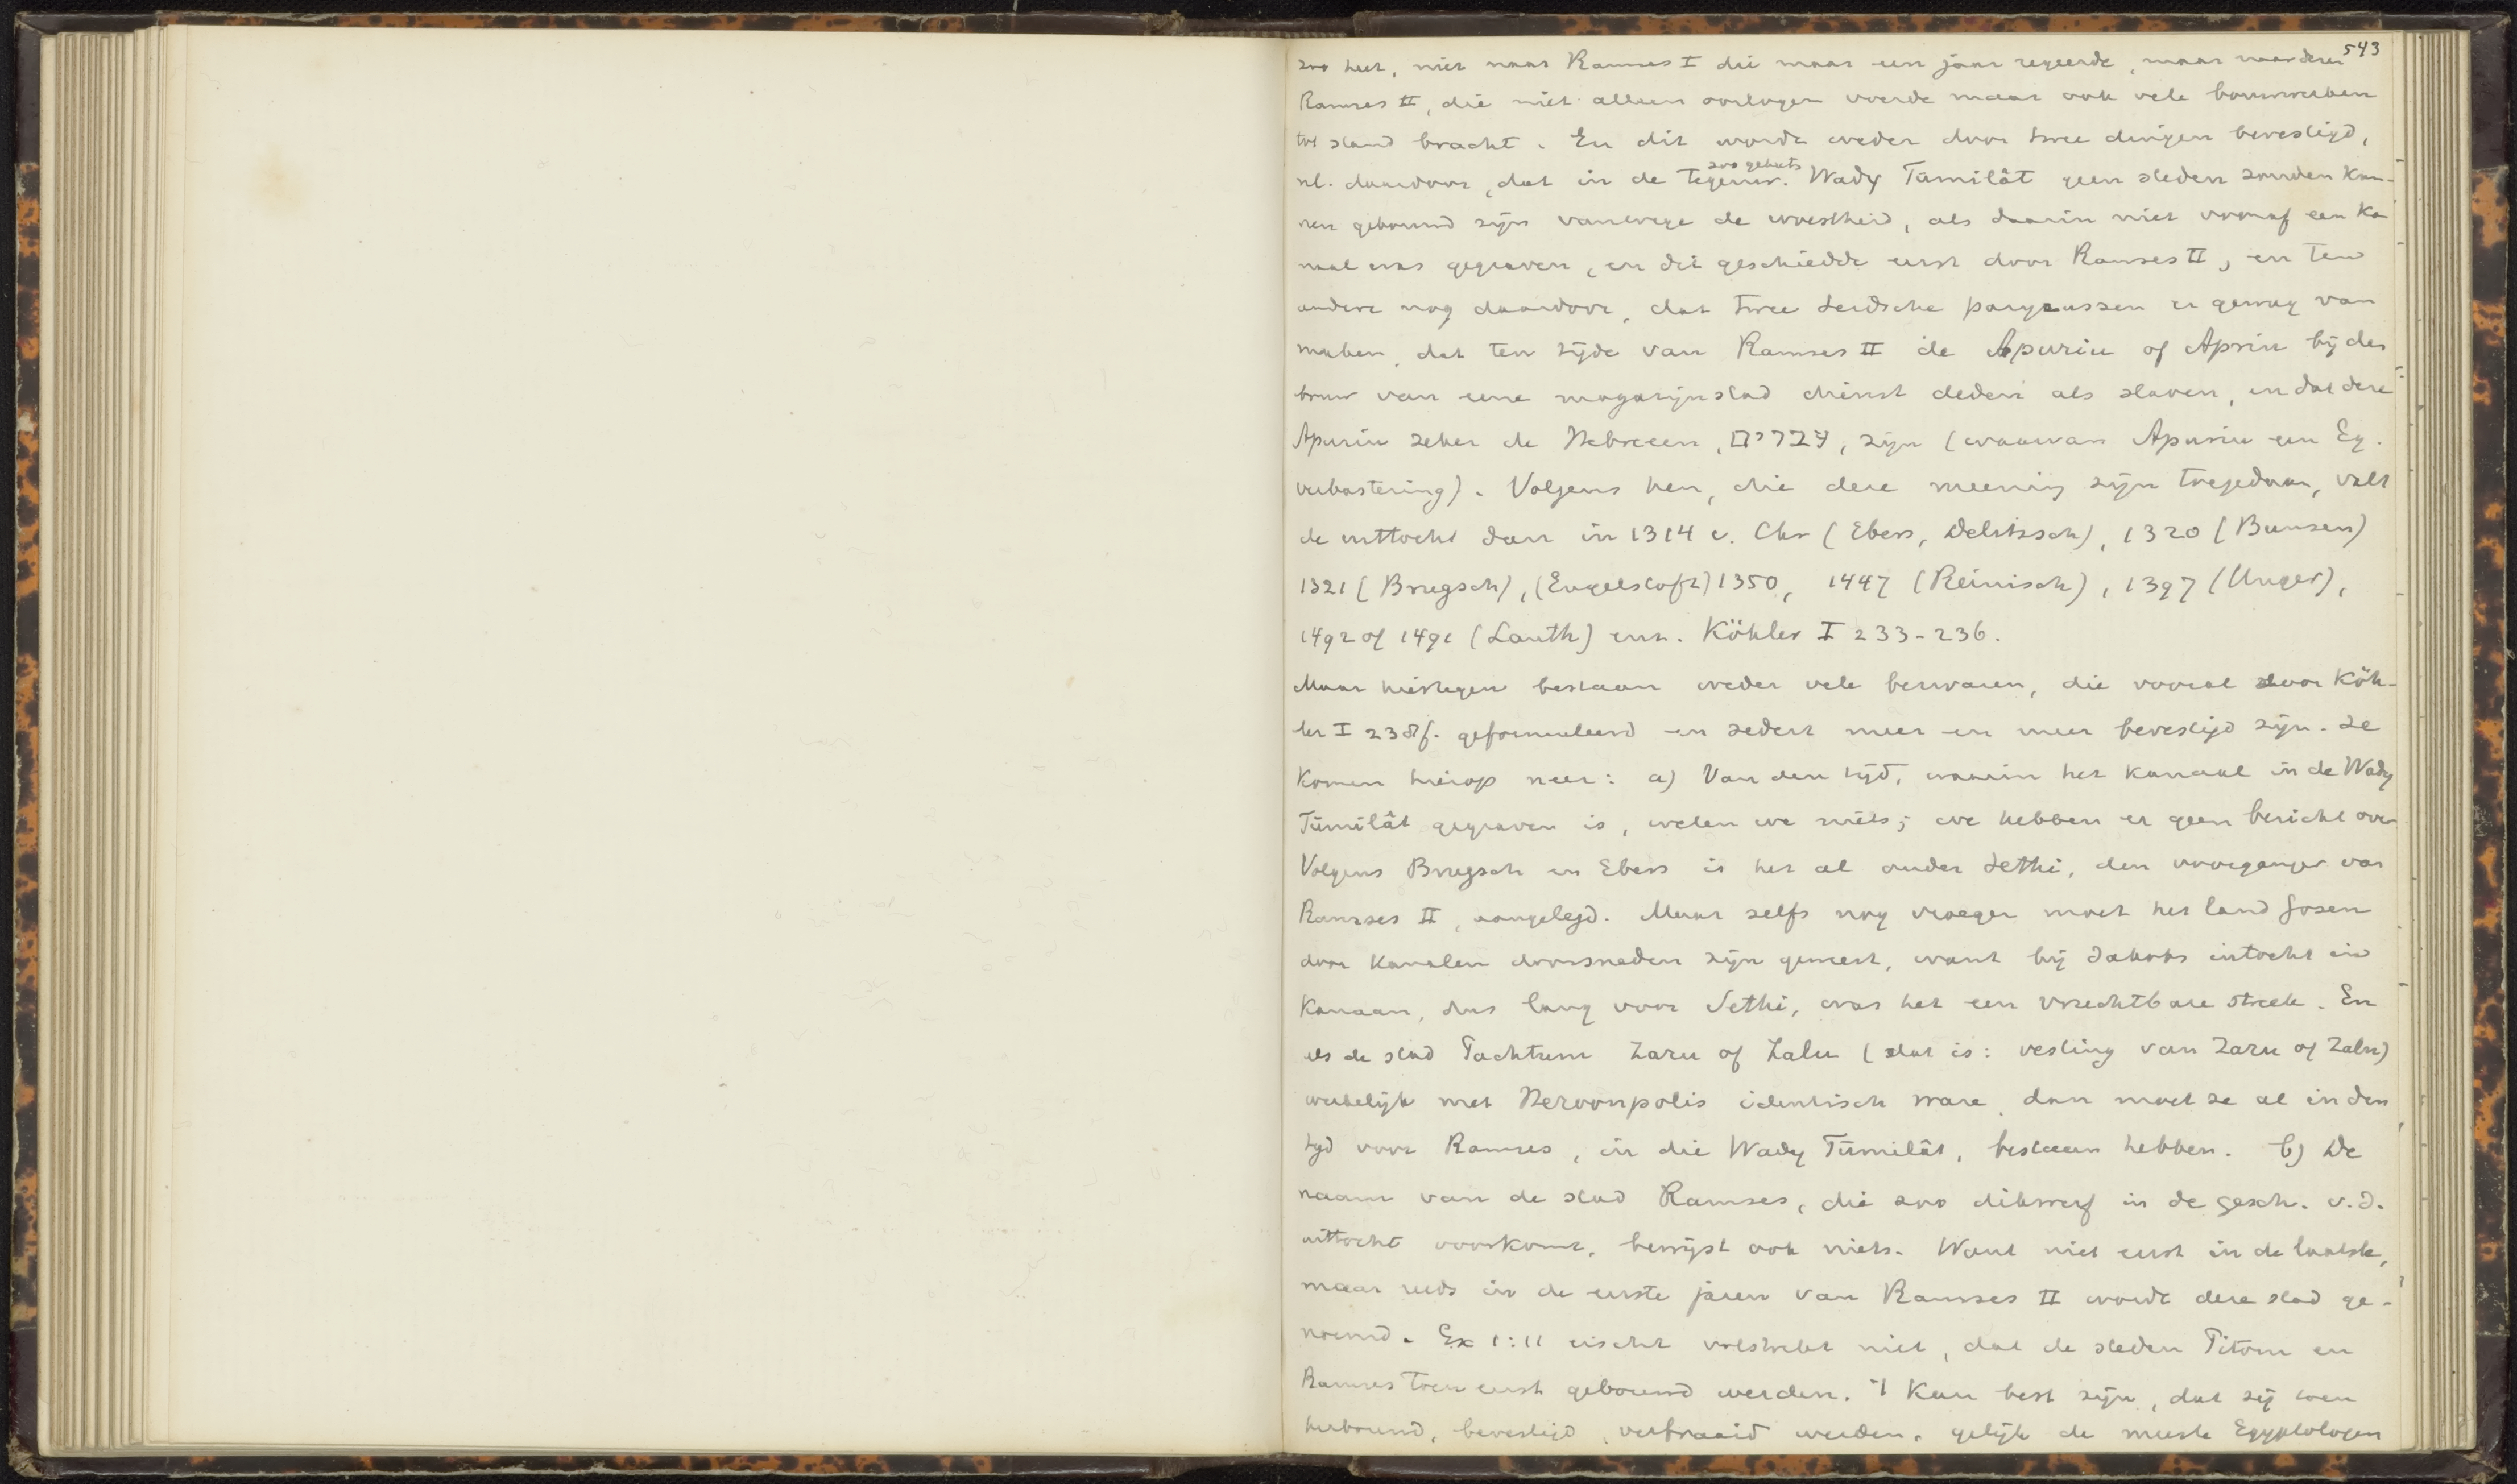 543
zoo heet, niet naar Ramses I die maar een jaar regeerde, maar naar dezen
Ramses II, die niet alleen oorlogen voerde maar ook vele bouwwerken
tot stand bracht. En dit wordt weder door twee dingen bevestigd,
nl. daardoor, dat in de tegenw. zoo geheeten Wady Tumilât geen steden zouden kun-
nen gebouwd zijn vanwege de woestheid, als daarin niet vooraf een ka
naal was gegraven, en dit geschiedde eerst door Ramses II, en ten
andere nog daardoor, dat twee Leidsche papyrussen er gewag van
maken, dat ten tijde van Ramses II de Apuriu of Apriu bij den
bouw van eene magazijnstad dienst deden als slaven, en dat deze
Apuriu zeker de Hebreeën, עברים, zijn (waarvan Apuriu een Eg.
verbastering). Volgens hen, die deze meening zijn toegedaan, valt
de uittocht dan in 1314 v. Chr (Ebers, Delitzsch), 1320 (Bunsen)
1321 (Brugsch), (Engelstoft) 1350, 1447 (Reinisch), 1397 (Unger),
1492 of 1491 (Lauth) enz. Köhler I 233-236.
Maar hiertegen bestaan weder vele bezwaren, die vooral door Köh-
ler I 238f. geformuleerd en sedert meer en meer bevestigd zijn. Ze
komen hierop neer: a) Van den tijd, waarin het kanaal in de Wady
Tûmilât gegraven is, weten we niets; we hebben er geen bericht over
Volgens Brugsch en Ebers is het al onder Sethi, den voorganger van
Ramses II, aangelegd. Maar zelfs nog vroeger moet het land Gosen
door kanalen doorsneden zijn geweest, want bij Jakobs intocht in
Kanaan, dus lang voor Sethi, was het een vruchtbare streek. En
als de stad Tachtum Zaru of Zalu (dat is: vesting van Zaru of Zalu)
werkelijk met Heroonpolis identisch ware, dan moet ze al in den
tijd voor Ramses, in die Wady Tûmilât, bestaan hebben. b) De
naam van de stad Ramses, die zoo dikwerf in de gesch. v.d.
uittocht voorkomt, bewijst ook niets. Want niet eerst in de laatste,
maar reeds in de eerste jaren van Ramses II wordt deze stad ge-
noemd. Ex 1:11 eischt volstrekt niet, dat de steden Pitom en
Ramses toen eerst gebouwd werden. 't Kan best zijn, dat zij toen
herbouwd, bevestigd, verfraaid werden, gelijk de meeste Egyptologen